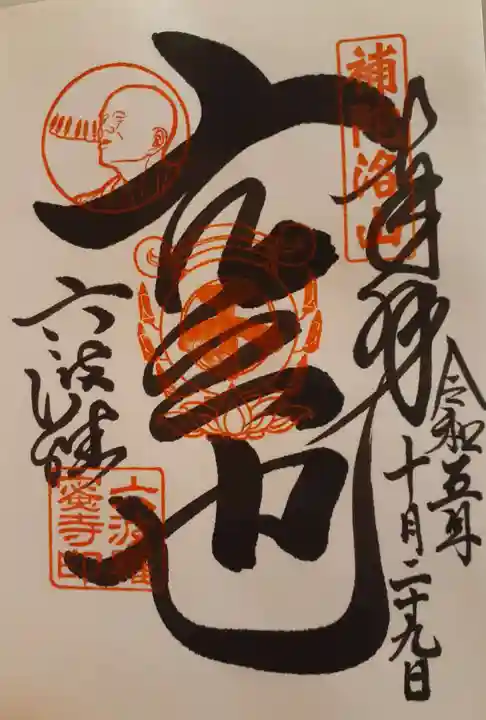 補陀洛山
奉拝
令和五年
十月二十九日
空也
六波羅
六波羅
蜜寺印